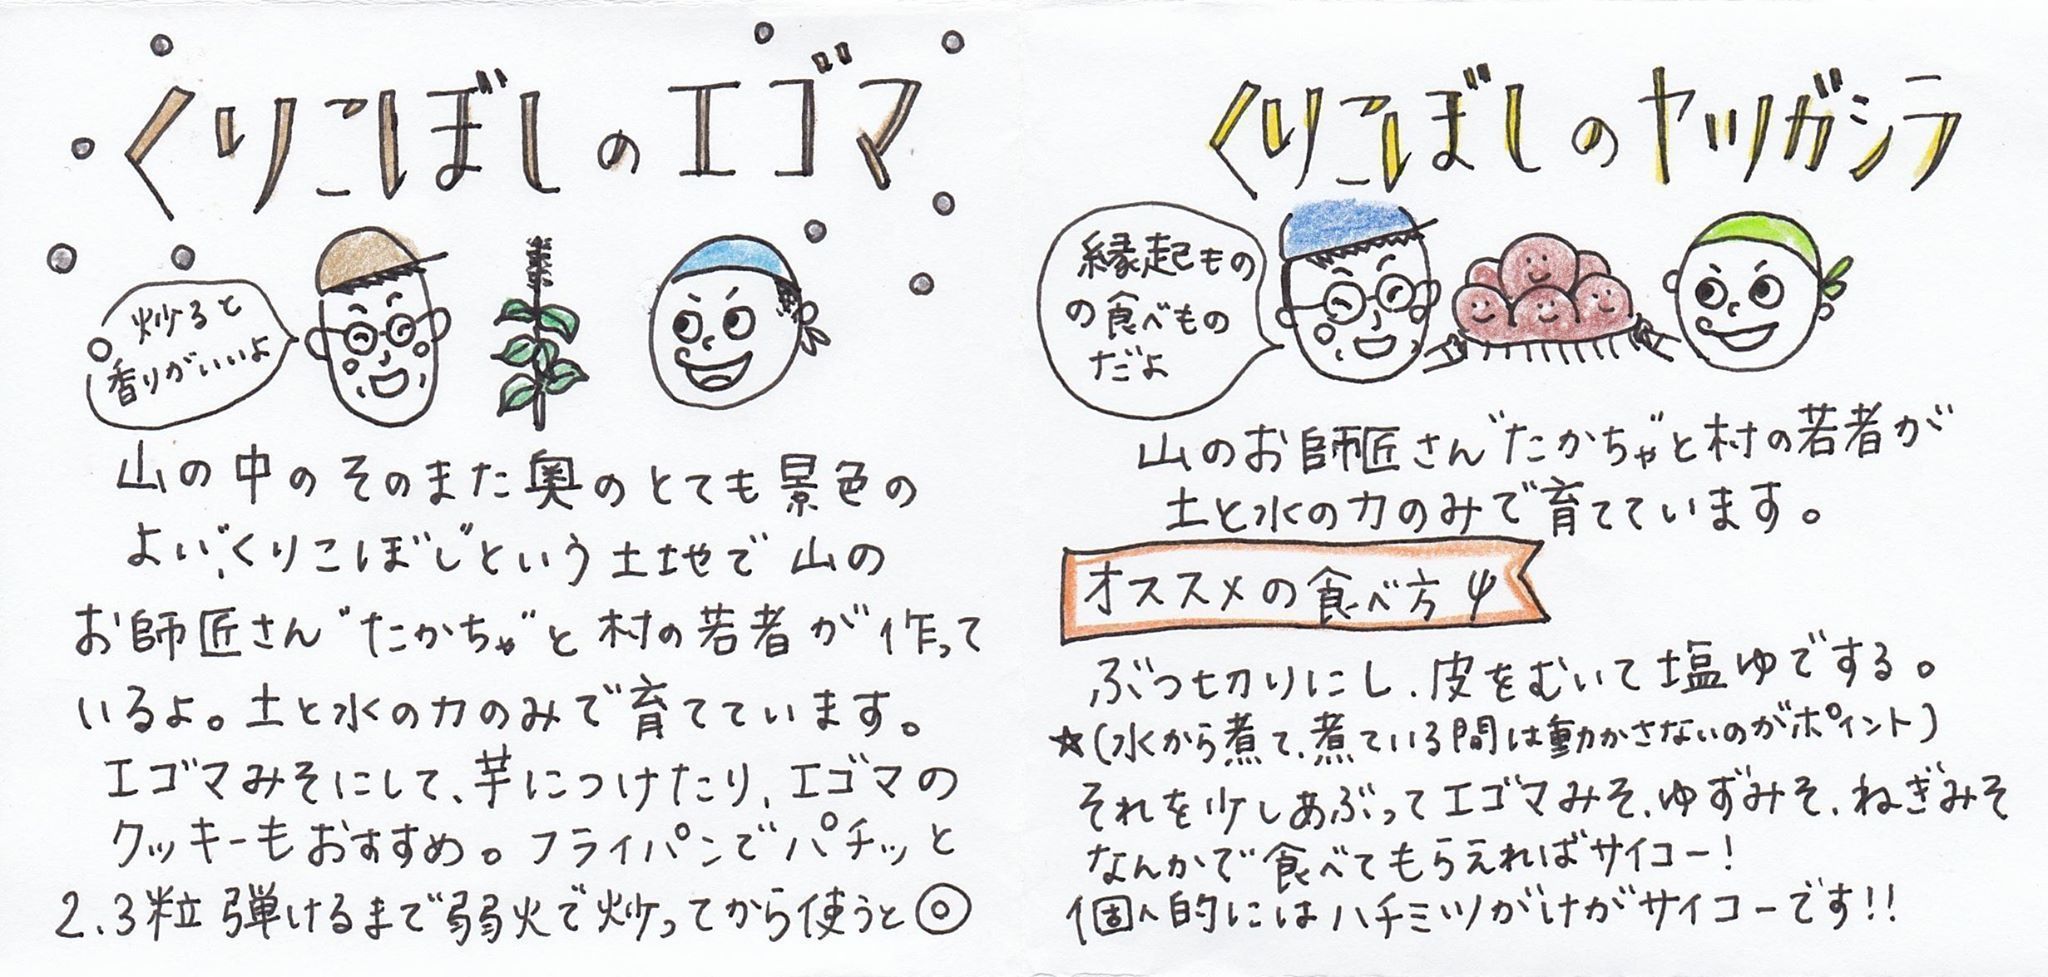 くりこぼしのエゴマ
炒ると
香りがいいよ
山の中のそのまた奥のとても景色の
よい、"くりこぼし"という土地で山の
お師匠さん"たかちゃ"と村の若者が作って
いるよ。土と水の力のみで育てています。
エゴマみそにして、芋につけたり、エゴマの
クッキーもおすすめ。フライパンでパチッと
2.3粒弾けるまで弱火で炒ってから使うと◎
くりこぼしのヤツガシラ
縁起もの
の食べもの
だよ
山のお師匠さん"たかちゃ"と村の若者が
土と水の力のみで育てています。
オススメの食べ方
ぶつ切りにし、皮をむいて塩ゆでする。
☆(水から煮て、煮ている間は動かさないのがポイント)
それを少しあぶってエゴマみそ、ゆずみそ、ねぎみそ
なんかで食べてもらえればサイコー!
個人的にはハチミツがけがサイコーです!!